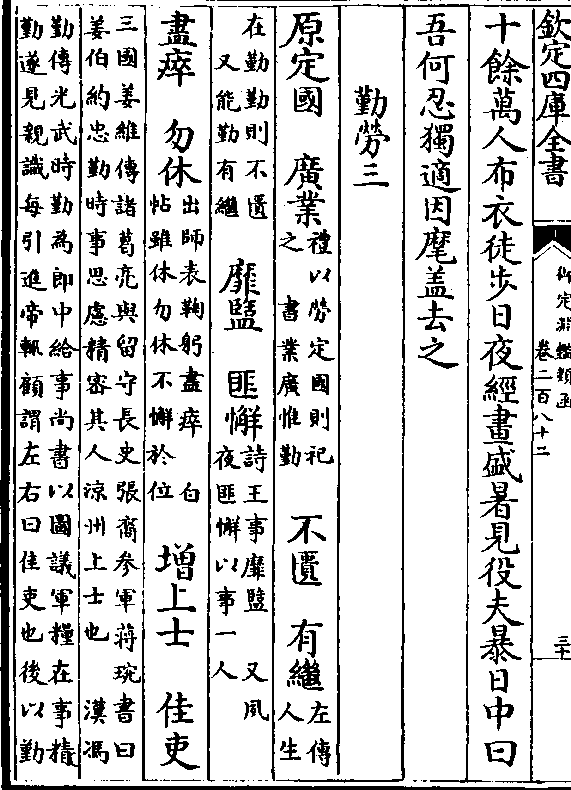 欽定四庫全書
御定淵鑑類函
卷二百八十二
三十
十餘萬人布衣徒步日夜經畫盛暑見役夫暴日中曰
吾何忍獨適因麾盖去之
勤勞三
原定國 廣業 禮以勞定國則祀之 書業廣惟勤 不匱 有繼 左傳人生
在勤勤則不匱又能勤有繼 靡盬 匪懈 詩王事靡盬 又夙夜匪懈以事一人
盡瘁 勿休 出師表鞠躬盡瘁 白帖雖休勿休不懈於位 增上士 佳吏
三國姜維傳諸葛亮與留守長史張裔参軍蔣琬書曰
姜伯約忠勤時事思慮精審其人涼州上士也 漢馮
勤傳光武時勤為郎中給事尚書以國議軍糧在事精
勤遂見親識每引進帝輒顧謂左右曰佳吏也後以勤